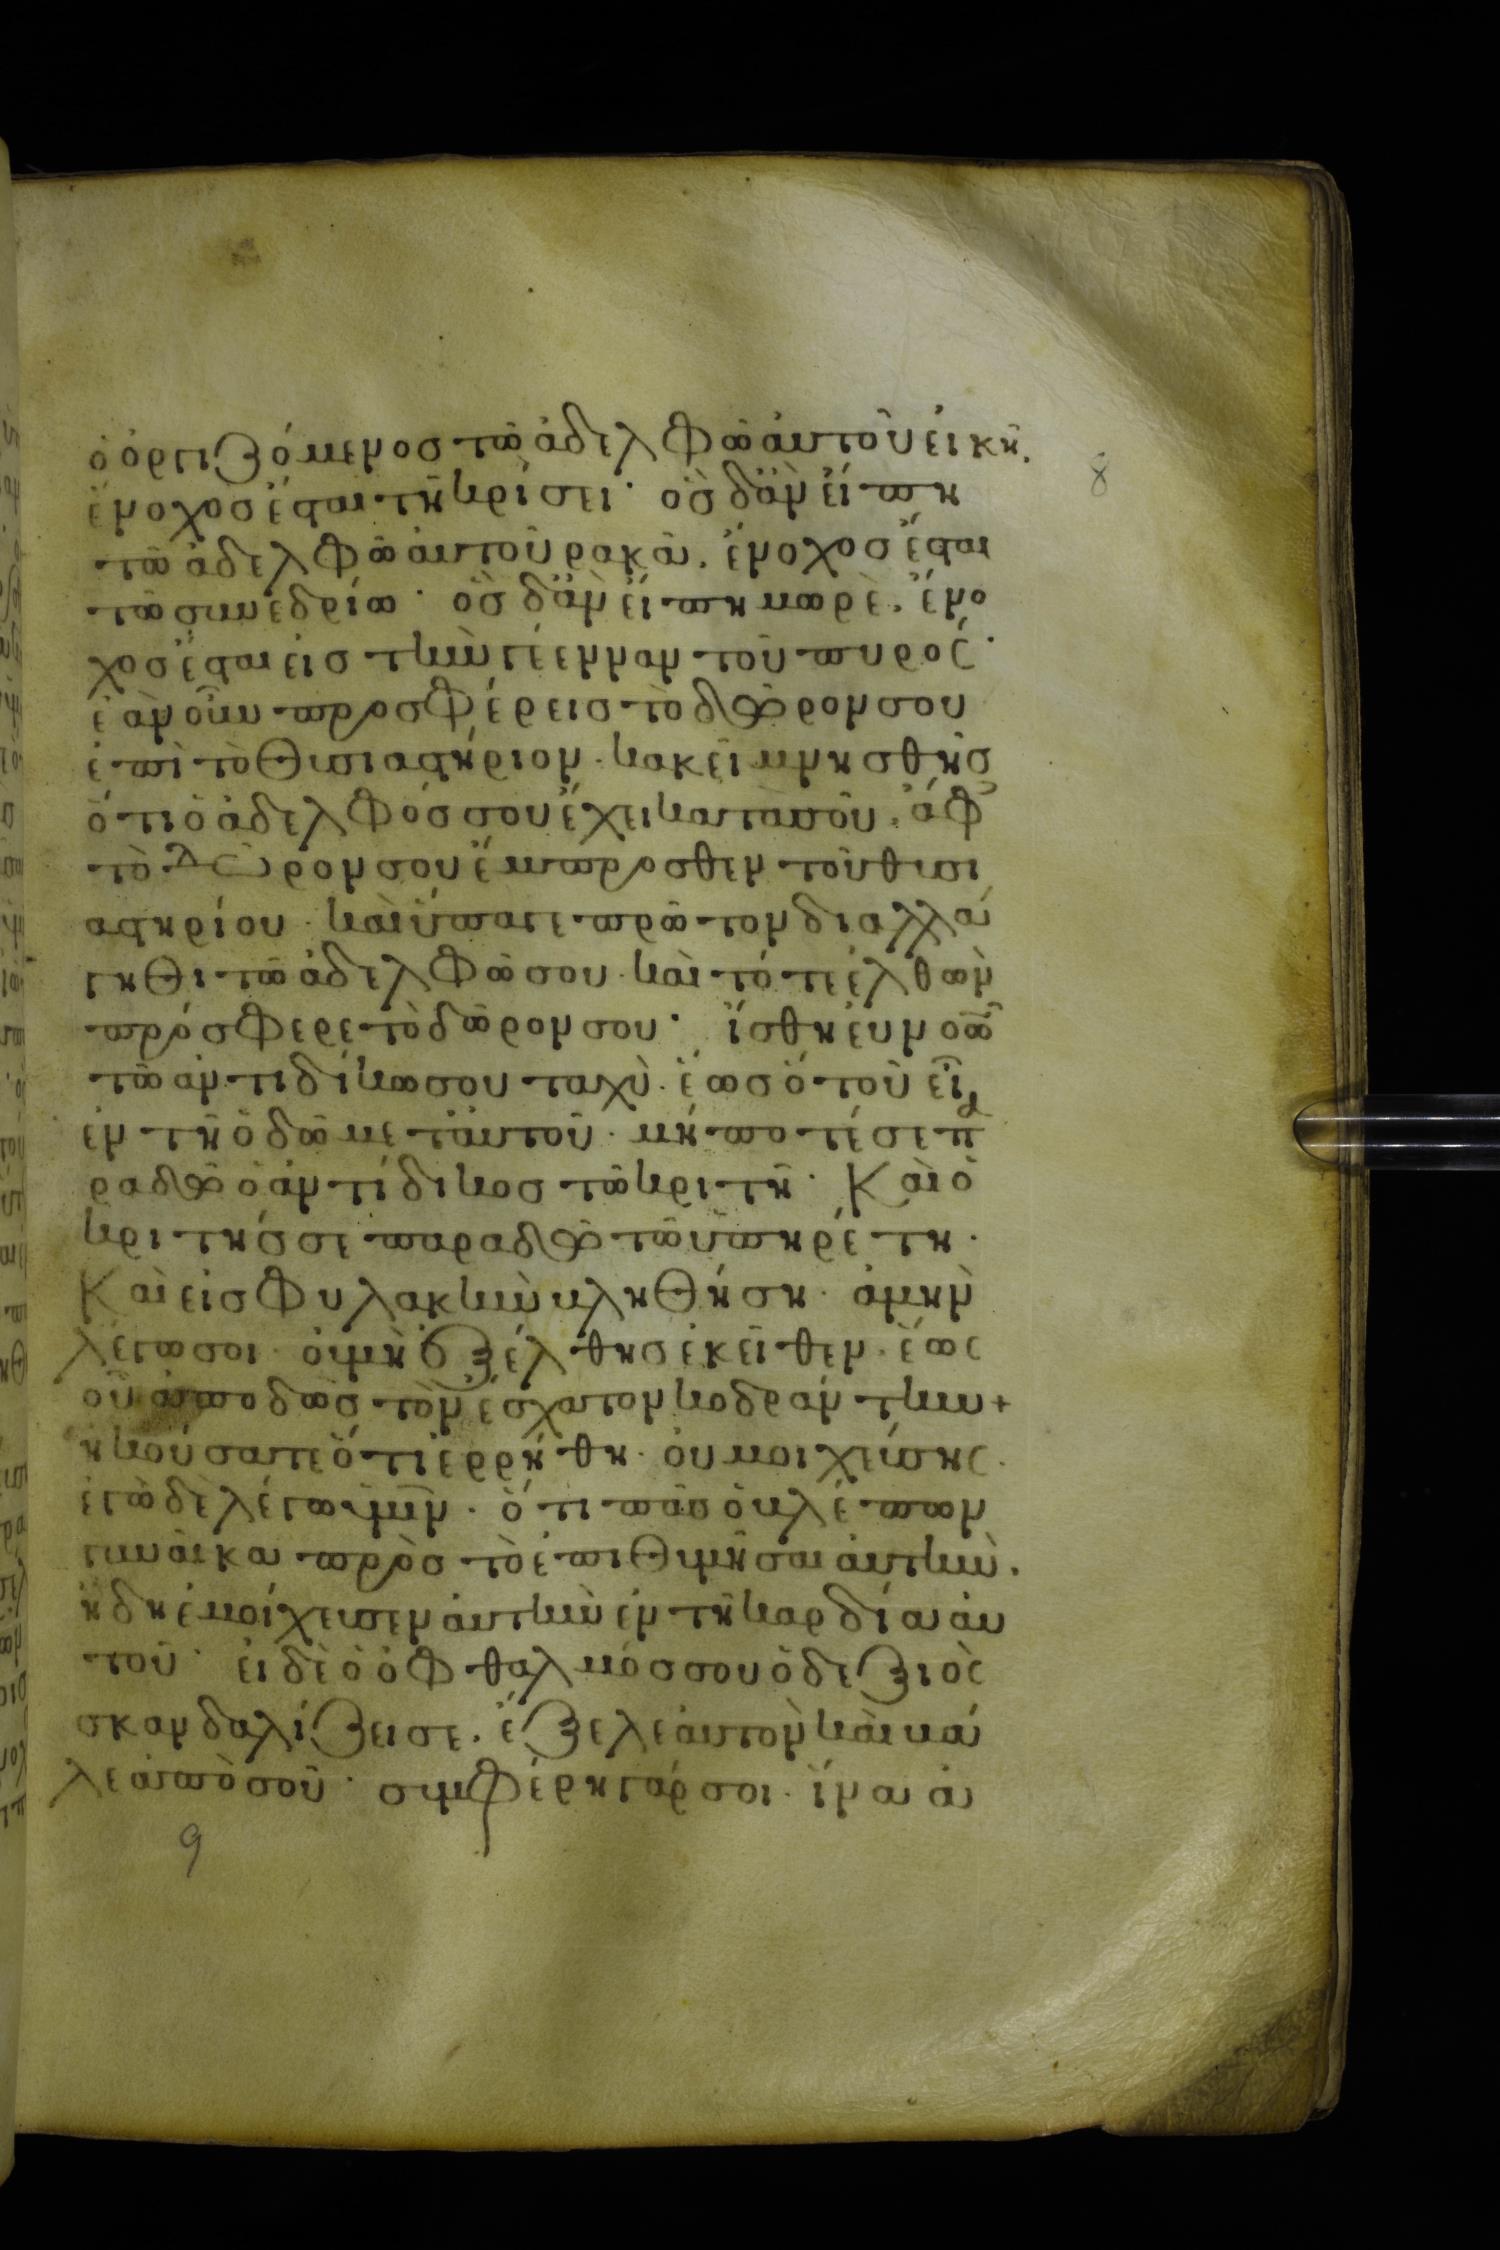 ὁ ὀργιζόμενος τῶ ἀδελφῶ αὐτοῦ εἰκῆ.
ἔνοχος ἔσται τῆ κρίσει· ὃς δ̓ ἂν εἴπη
τῶ ἀδελφῶ αὐτοῦ ρακὰ, ἔνοχος ἔσται
τῶ συνεδρίω· ὃς δ̓ ἂν εἴπη μωρὲ, ἔνο
χος ἔσται εἰς τὴν γέενναν τοῦ πυρός·
ἐὰν οὖν προσφέρεις τὸ δῶρον σου
ἐπὶ τὸ θυσιαστήριον· κακεῖ μνησθῆς
ὅτι ὁ ἀδελφός σου ἔχει κατὰ σοῦ, ἄφες
τὸ δῶρον σου ἔμπροσθεν τοῦ θυσι
αστηρίου· καὶ ὕπαγε πρῶτον διαλλά
γηθι τῶ ἀδελφῶ σου· καὶ τότε ἐλθὼν
πρόσφερε τὸ δῶρον σου· ἴσθη εὐνοῶν
τῶ αντιδίκω σου ταχὺ· ἕως ὅτου εἶ
ἐν τῆ ὁδῶ μετ αὐτοῦ· μή ποτέ σε πα
ραδῶ ὁ ἀντίδικος τῶ κριτῆ· Καὶ ὁ
κριτής σε παραδῶ τῶ ὑπηρέτη·
Καὶ εἰς φυλακὴν βληθήση· ἀμὴν
λέγω σοι· οὐ μὴ ἐξέλθης ἐκεῖθεν· ἕως
οὗ ἀποδῶς τὸν ἔσχατον κοδράντην+
ἠκούσατε ὅτι ἐρρήθη· οὐ μοιχεύσης·
ἐγὼ δὲ λέγω ὑμῖν· ὅτι πᾶς ὁ βλέπων
γυναῖκα πρὸς τὸ ἐπιθυμῆσαι αὐτὴν.
ἤδη ἐμοίχευσεν αὐτὴν ἐν τῆ καρδία αὐ
τοῦ· εἰ δὲ ὁ ὀφθαλμός σου ὁ δεξιὸς
σκανδαλίζει σε· ἔξελε αὐτον καὶ βά
λε ἀπὸ σοῦ· συμφέρη γάρ σοι· ἵνα ἀ
8
9